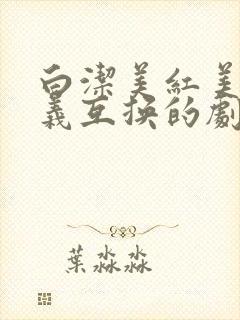 白潔美紅美
義互換的劇
葉淼淼